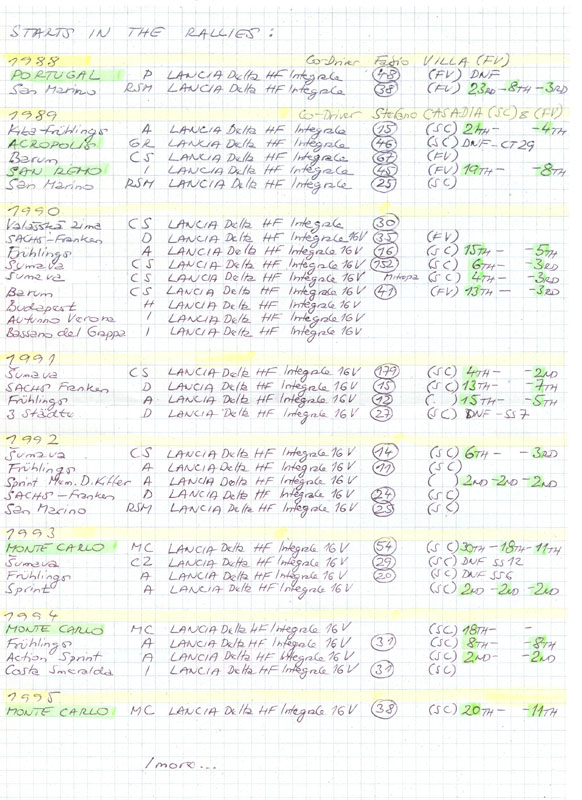 STARTS IN THE RALLIES:
1988 Co-Driver Fabio VILLA (FV)
PORTUGAL P LANCIA Delta HF Integrale 48 (FV) DNF
San Marino RSM LANCIA Delta HF Integrale 38 (FV) 23RD - 8TH - 3RD
1989 Co-Driver Stefano CASADIA (SC) & (FV)
A LANCIA Delta HF Integrale 15 (SC) - 4TH
ACROPOLIS GR LANCIA Delta HF Integrale 46 (SC) DNF - CT29
Barum CS LANCIA Delta HF Integrale 67 (FV)
SAN REMO I LANCIA Delta HF Integrale 45 (FV) 19TH - - 8TH
San Marino RSM LANCIA Delta HF Integrale 25 (SC)
1990
Valašská zima CS LANCIA Delta HF Integrale 30
SACHS-Franken D LANCIA Delta HF Integrale 16V 35 (FV)
Frühlings A LANCIA Delta HF Integrale 16V 16 (SC) 15TH - - 5TH
Šumava CS LANCIA Delta HF Integrale 16V 152 (SC) 6TH - - 3RD
Šumava CS LANCIA Delta HF Integrale 16V Mitropa (SC) 4TH - - 3RD
Barum CS LANCIA Delta HF Integrale 16V 41 (FV) 13TH - - 3RD
Budapest H LANCIA Delta HF Integrale 16V
Autunno Verona I LANCIA Delta HF Integrale 16V
Bassano del Grappa I LANCIA Delta HF Integrale 16V
1991
Šumava CS LANCIA Delta HF Integrale 16V 179 (SC) 4TH - - 2ND
SACHS Franken D LANCIA Delta HF Integrale 16V 15 (SC) 13TH - - 7TH
Frühlings A LANCIA Delta HF Integrale 16V 12 ( . ) 15TH - - 5TH
3 Städte D LANCIA Delta HF Integrale 16V 27 (SC) DNF - SS7
1992
Šumava CS LANCIA Delta HF Integrale 16V 14 (SC) 6TH - - 3RD
Frühlings A LANCIA Delta HF Integrale 16V 11 (SC)
Sprint Mem. D. A LANCIA Delta HF Integrale 16V ( ) 2ND - 2ND - 2ND
SACHS-Franken D LANCIA Delta HF Integrale 16V 24 (SC)
San Marino RSM LANCIA Delta HF Integrale 16V 25 (SC)
1993
MONTE CARLO MC LANCIA Delta HF Integrale 16V 54 (SC) 30TH - 18TH - 11TH
Šumava CZ LANCIA Delta HF Integrale 16V 29 (SC) DNF SS12
Frühlings A LANCIA Delta HF Integrale 16V 20 (SC) DNF SS6
Sprint A LANCIA Delta HF Integrale 16V (SC) 2ND - 2ND - 2ND
1994
MONTE CARLO MC LANCIA Delta HF Integrale 16V (SC) 18TH - -
Frühlings A LANCIA Delta HF Integrale 16V 31 (SC) 8TH - - 8TH
Action Sprint A LANCIA Delta HF Integrale 16V (SC) 2ND - - 2ND
Costa Smeralda I LANCIA Delta HF Integrale 16V 31 (SC)
1995
MONTE CARLO MC LANCIA Delta HF Integrale 16V 38 (SC) 20TH - - 11TH
/more...